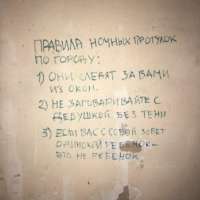 ПРАВИЛА НОЧНЫХ ПРОГУЛОК
ПО ГОРОДУ:
1) ОНИ СЛЕДЯТ ЗА ВАМИ
ИЗ ОКОН.
2) НЕ ЗАГОВАРИВАЙТЕ С
ДЕДУШКОЙ БЕЗ ТЕНИ
3) ЕСЛИ ВАС С СОБОЙ ЗОВЕТ
ОДИНОКИЙ РЕБЕНОК–
ЭТО НЕ РЕБЕНОК.